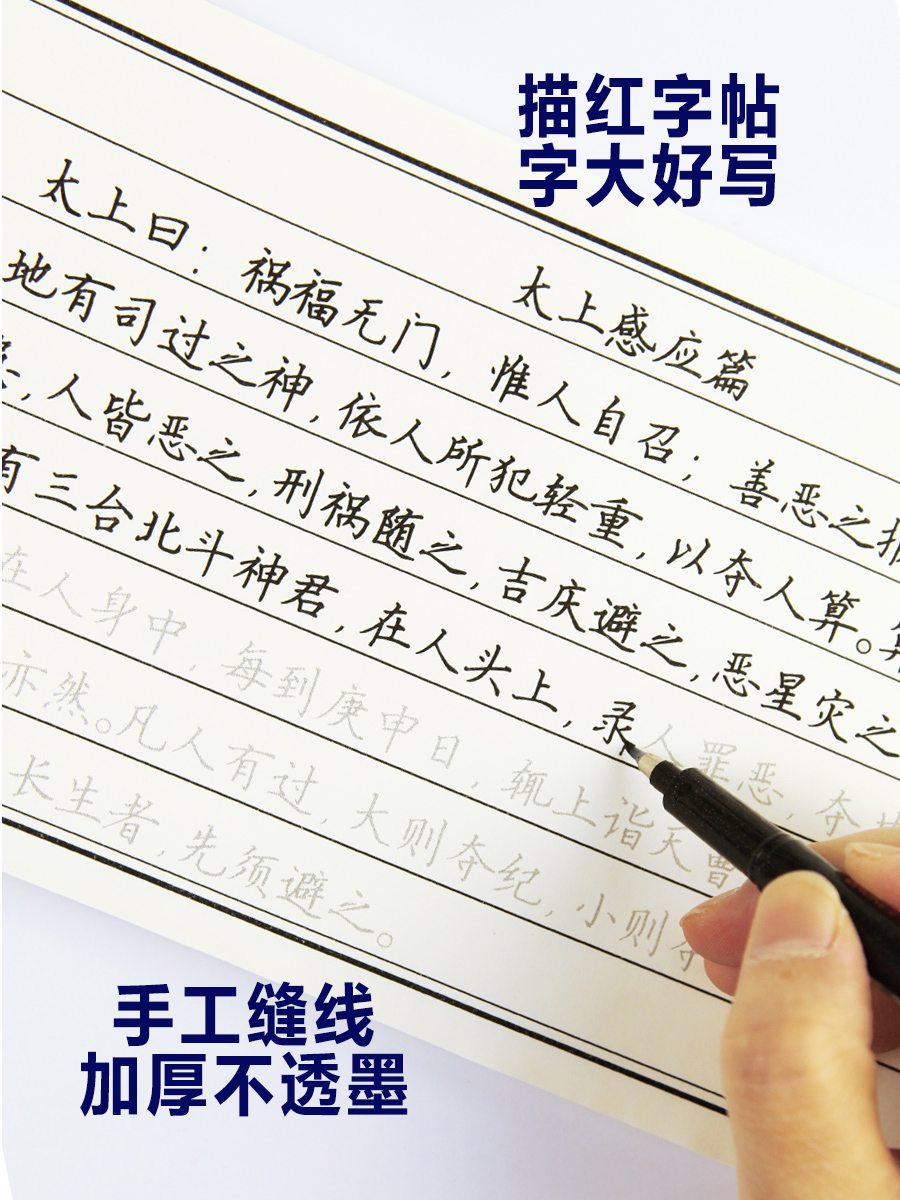 描红字帖
字大好写
太上感应篇
太上曰：祸福无门，惟人自召；善恶之报
地有司过之神，依人所犯轻重，以夺人算。
，人皆恶之，刑祸随之，吉庆避之，恶星灾之
有三台北斗神君，在人头上，录人罪恶，夺
在人身中，每到庚申日，辄上诣天曹
亦然。凡人有过，大则夺纪，小则夺
长生者，先须避之。
手工缝线
加厚不透墨